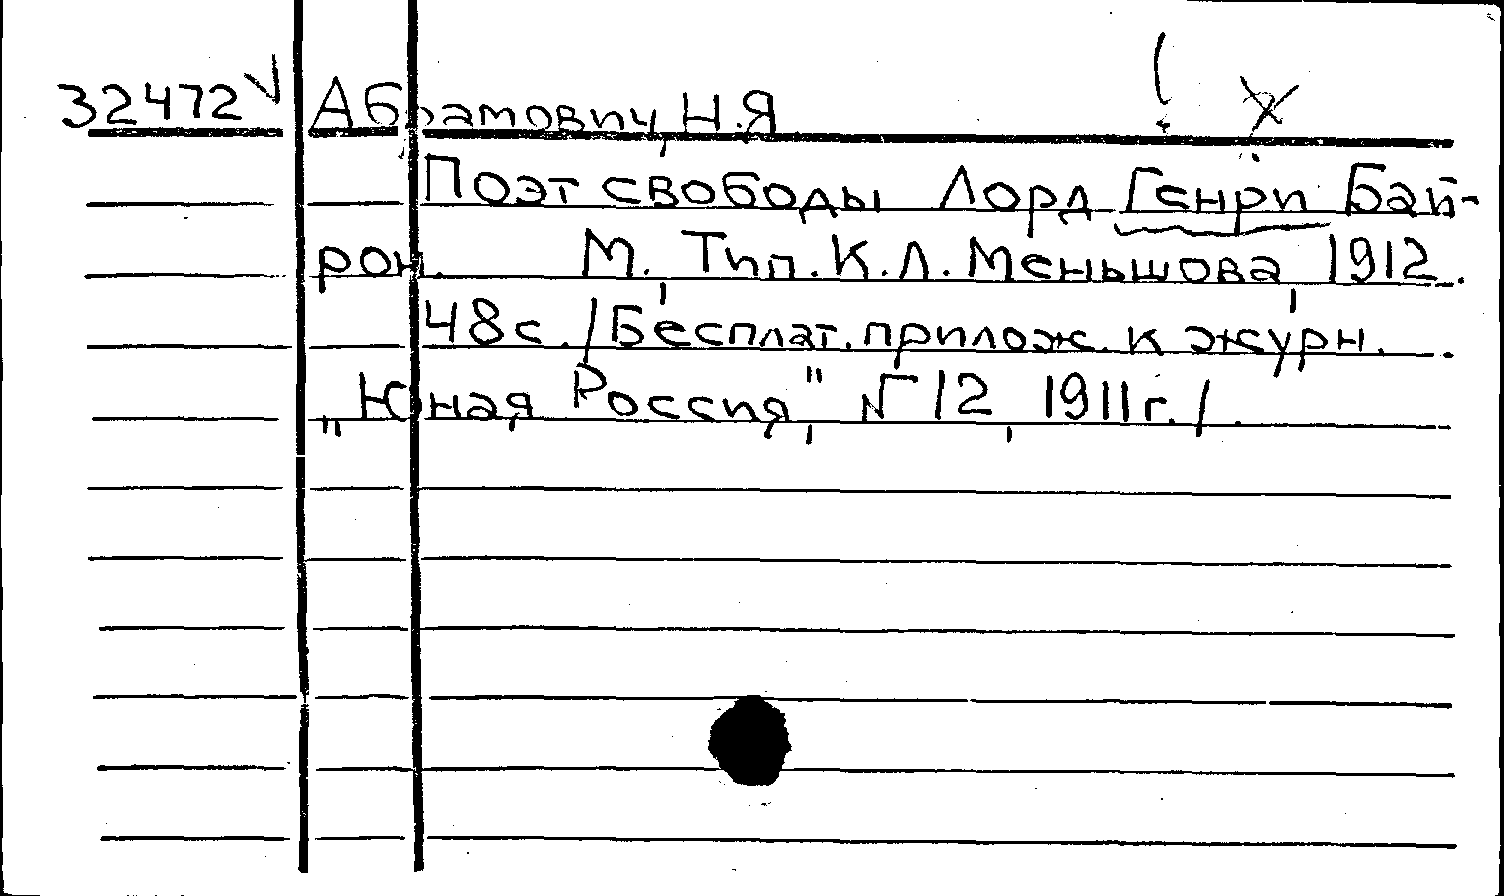 32472 Абрамович, Н.Я
Поэт свободы Лорд Генри Бай-
рон. М. Тип. К.Л. Меньшова, 1912.
48 с. /Бесплат. прилож. к журн.
„Юная Россия", № 12, 1911 г./.